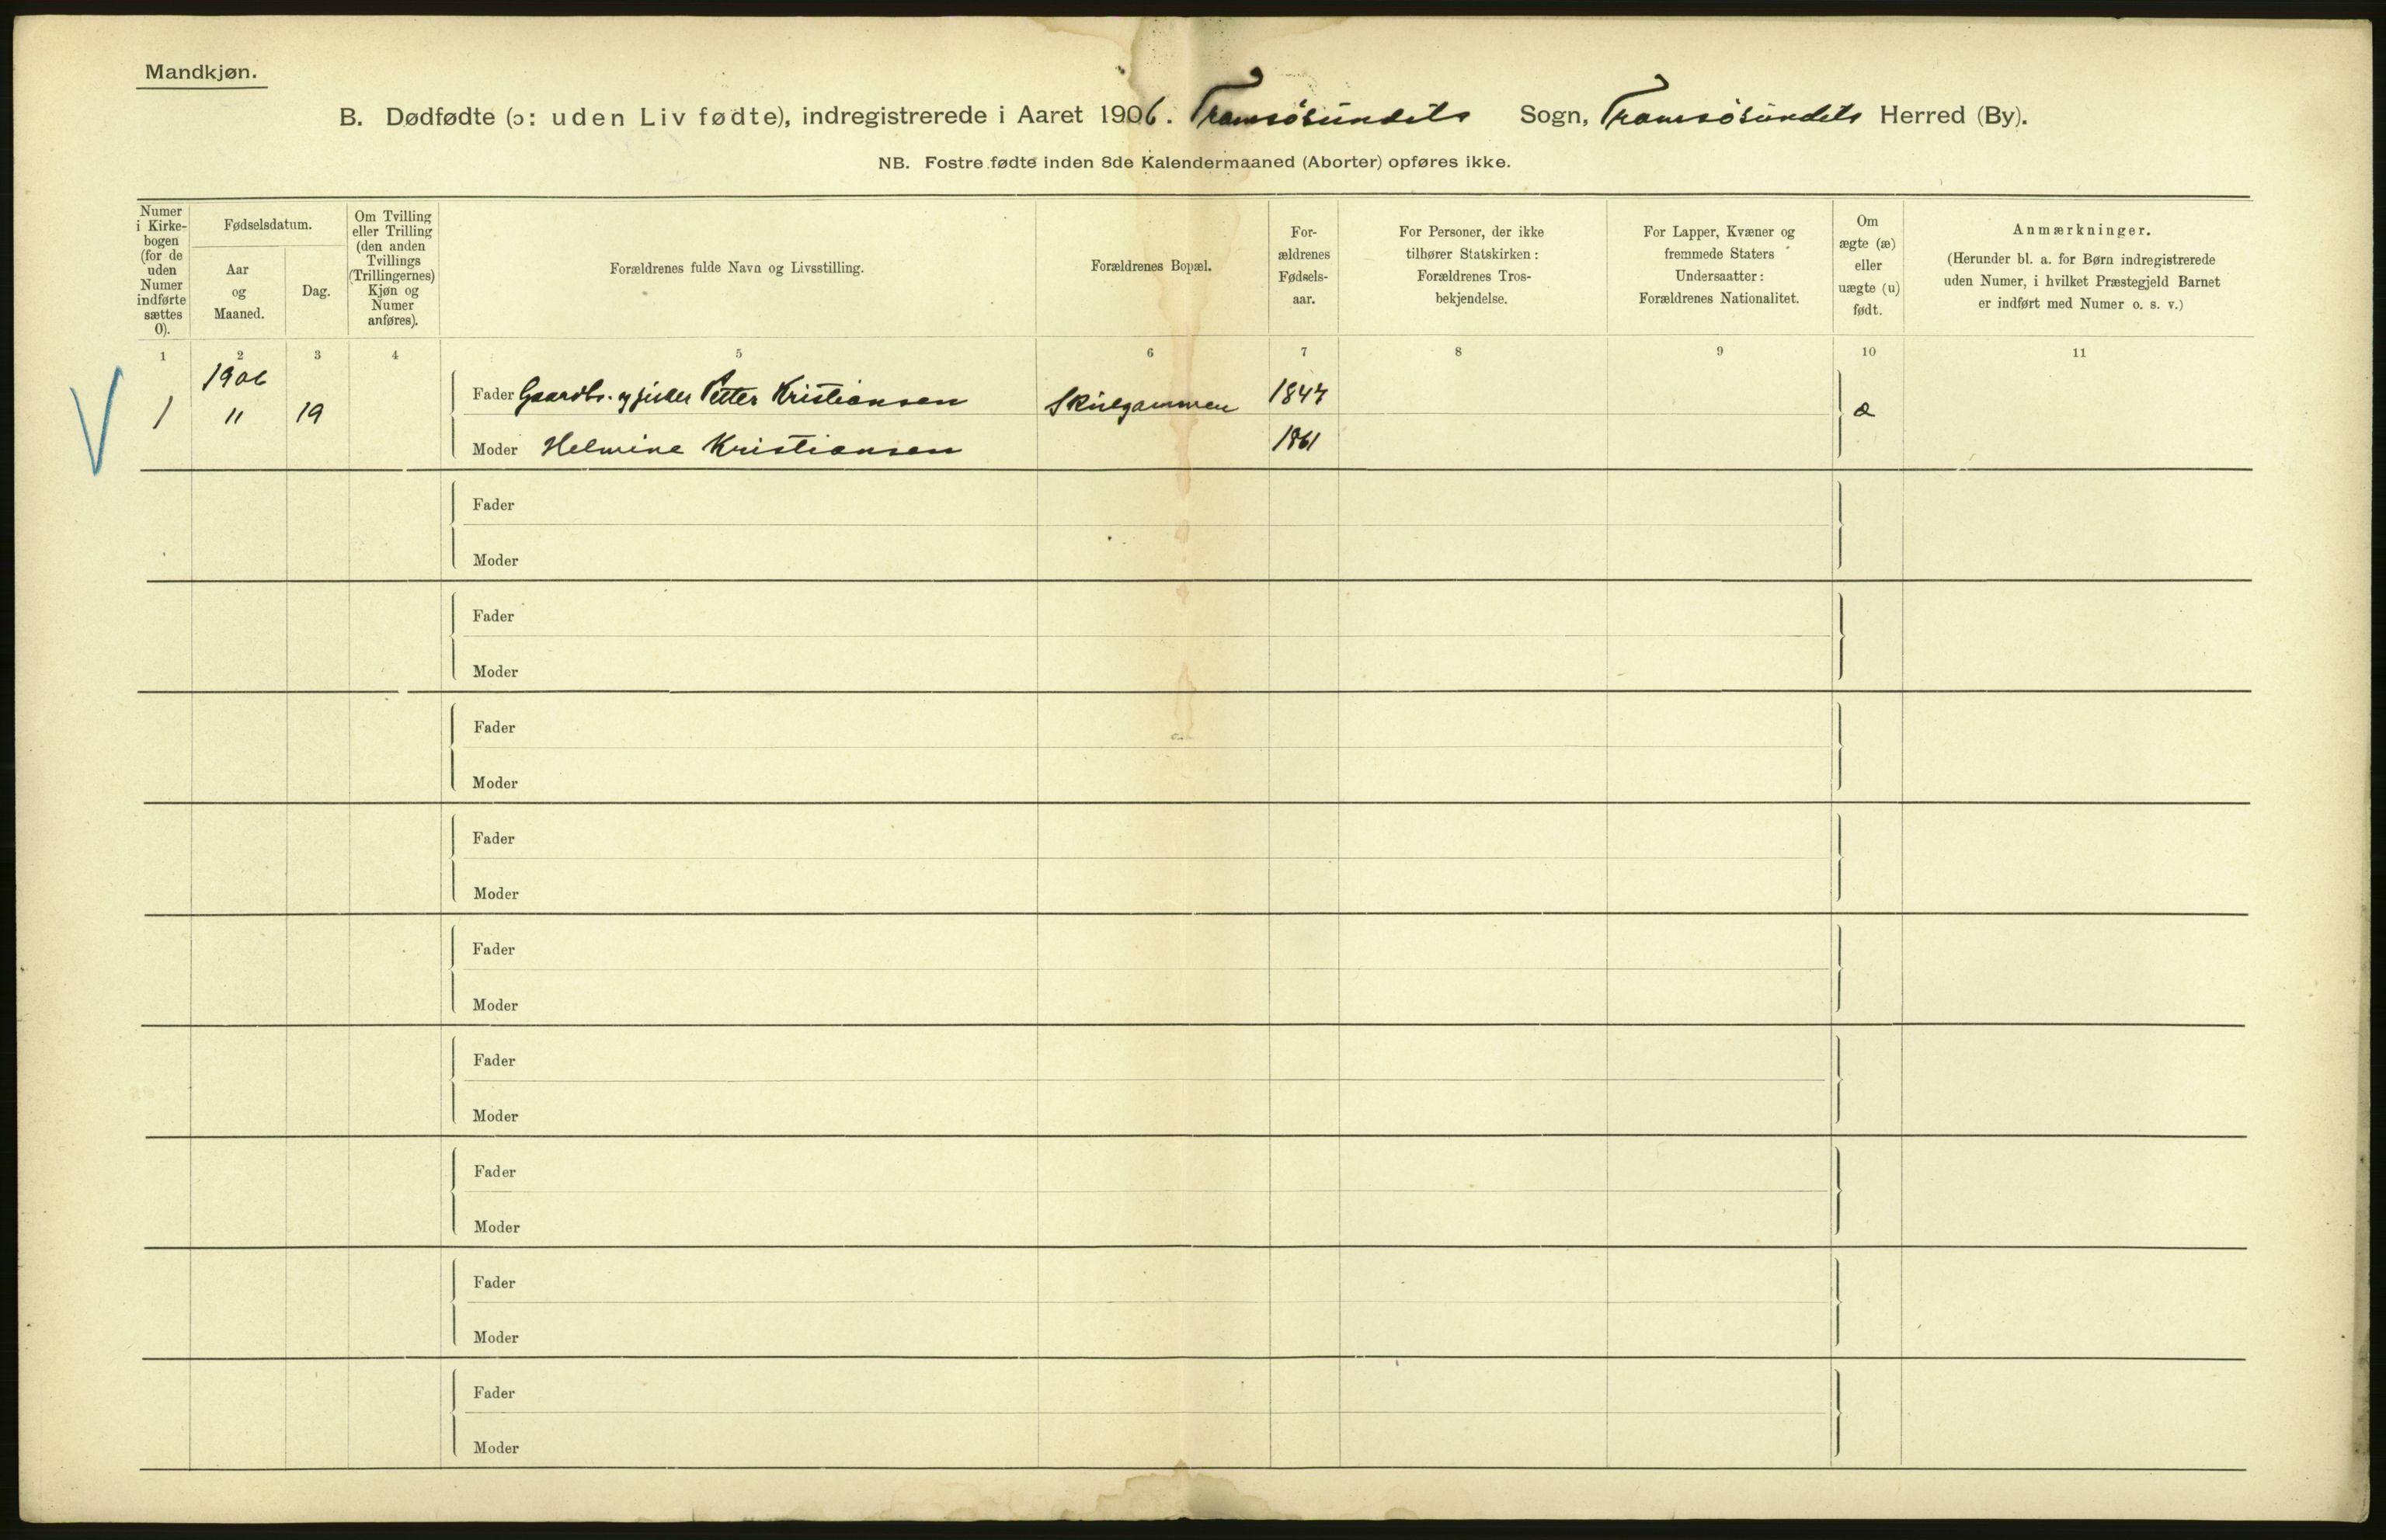 Mandkjøn.
B. Dødfødte (ɔ: uden Liv fødte), indregistrerede i Aaret 1906. Tromsøsundets Sogn, Tromsøsundets Herred (By).
NB. Fostre fødte inden 8de Kalendermaaned (Aborter) opføres ikke.
Numer
i Kirke-
bogen
(for de
uden
Numer
indførte
sættes
0).
Fødselsdatum.
Aar
og
Maaned.
Dag.
Om Tvilling
eller Trilling
(den anden
Tvillings
(Trillingernes)
Kjøn og
Numer
anføres).
Forældrenes fulde Navn og Livsstilling.
Forældrenes Bopæl.
For-
ældrenes
Fødsels-
aar.
For Personer, der ikke
tilhører Statskirken:
Forældrenes Tros-
bekjendelse.
For Lapper, Kvæner og
fremmede Staters
Undersaatter:
Forældrenes Nationalitet.
Om
ægte (æ)
eller
uægte (u)
født.
Anmærkninger.
(Herunder bl. a. for Børn indregistrerede
uden Numer, i hvilket Præstegjeld Barnet
er indført med Numer o. s. v.)
1 2 3 4 5 6 7 8 9 10 11
1906
V 1 11 19 Fader Gaardbr. og fisker Petter Kristiansen Skulgammen 1847 æ
Moder Helmine Kristiansen 1861
Fader
Moder
Fader
Moder
Fader
Moder
Fader
Moder
Fader
Moder
Fader
Moder
Fader
Moder
Fader
Moder
Fader
Moder